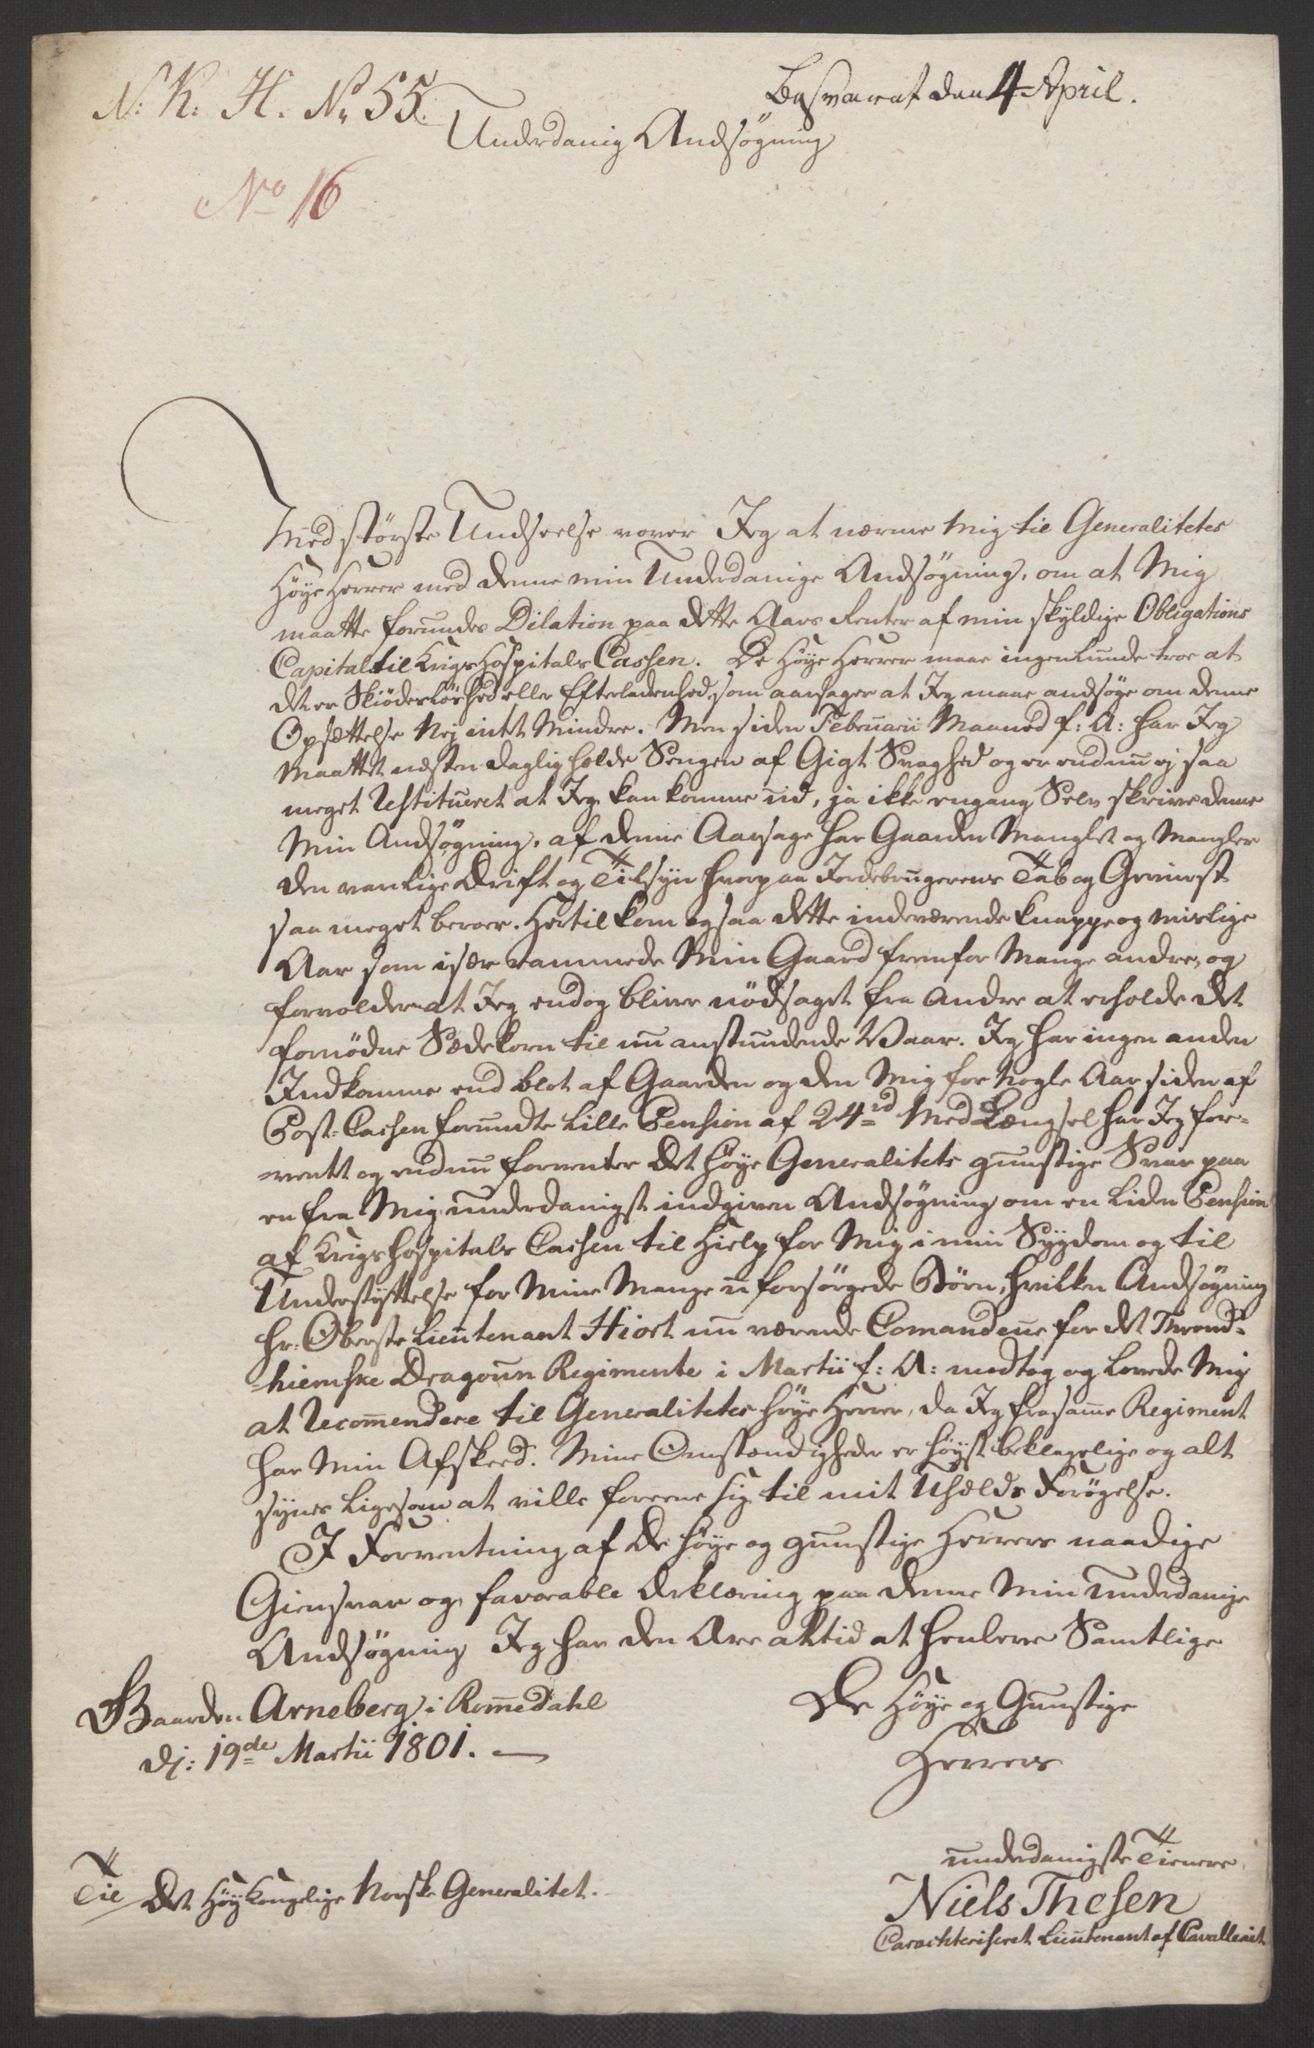 N: K: H. No 55.
Besvaret den 4 April.
Underdanig Andsøgning
No 16
Med største Undseelse vover Jeg at nærme Mig til Generalitetes
Høye Herrer med denne min Underdanige Andsøgning, om at Mig
maatte forundes Dilation paa dette Aars Renter af min skyldige Obligations
Capital til Krigs Hospitals Cassen. De Høye Herrer maae ingenlunde troe at
det er Skiødesløshed eller Efterladenhed, som aarsager at Jeg maae andsøge om denne
Opsættelse Nej intet Mindre. Men siden Februarii Maaned f: A: har Jeg
Maattet næsten daglig holde Sengen af Gigt Svaghed og er endnu ej saa
meget Restitueret at Jeg kan komme ud, ja ikke engang Selv skrive denne
Min Andsøgning, af denne Aarsage har Gaarden Manglet og Mangler
den vanlige Drift og Tilsyn hvorpaa Jordebrugerens Tab og Gevinst
saa meget beroer. Hertil kom ogsaa dette indeværende knappe og mislige
Aar som især rammede Min Gaard fremfor Mange andre, og
forvolder at Jeg endog bliver nødsaget fra Andre at erholde det
fornødne Sædekorn til nu anstundende Vaar. Jeg har ingen anden
Indkomme end blot af Gaarden og den Mig for Nogle Aar siden af
Post-Cassen forundte lille Pension af 24 rd Med Længsel har Jeg for-
ventet og endnu forventer det høye Generalitets gunstige Svar paa
en fra Mig underdanigst indgiven Andsøgning om en liden Pension
af Krigshospitals Cassen til Hielp for Mig i min Sygdom og til
Understyttelse for Mine Mange uforsørgede Børn, hvilken Andsøgning
Hr: Oberste Lieutenant Hiort nu værende Comandeur for det Thrond-
hiemske Dragoun Regimente i Martii f: A: modtog og lovede Mig
at Recommendere til Generalitetes høye Herrer, da Jeg fra samme Regiment
har Min Afskeed. Mine Omstændigheder er høyst beklagelige og alt
synes ligesom at ville foreene sig til mit Uhelds Forøgelse.
I Forventning af De høye og gunstige Herrers naadige
Giensvar og favorable Erklæring paa denne Min underdanige
Andsøgning Jeg har den Ære altid at henleve Samtlige
Gaarden Arneberg i Romedahl
dj: 19de Martii 1801.
De Høye og Gunstige
Herrers
underdanigste Tienere
Niels Thesen
Carachteriseret Lieutenant af Cavalleriet
Til Det Høy Kongelige Norske Generalitet.